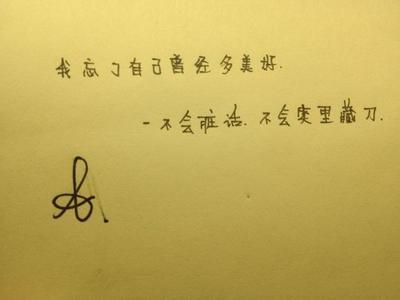 我忘了自己曾经多美好.
-不会脏话.不会笑里藏刀.